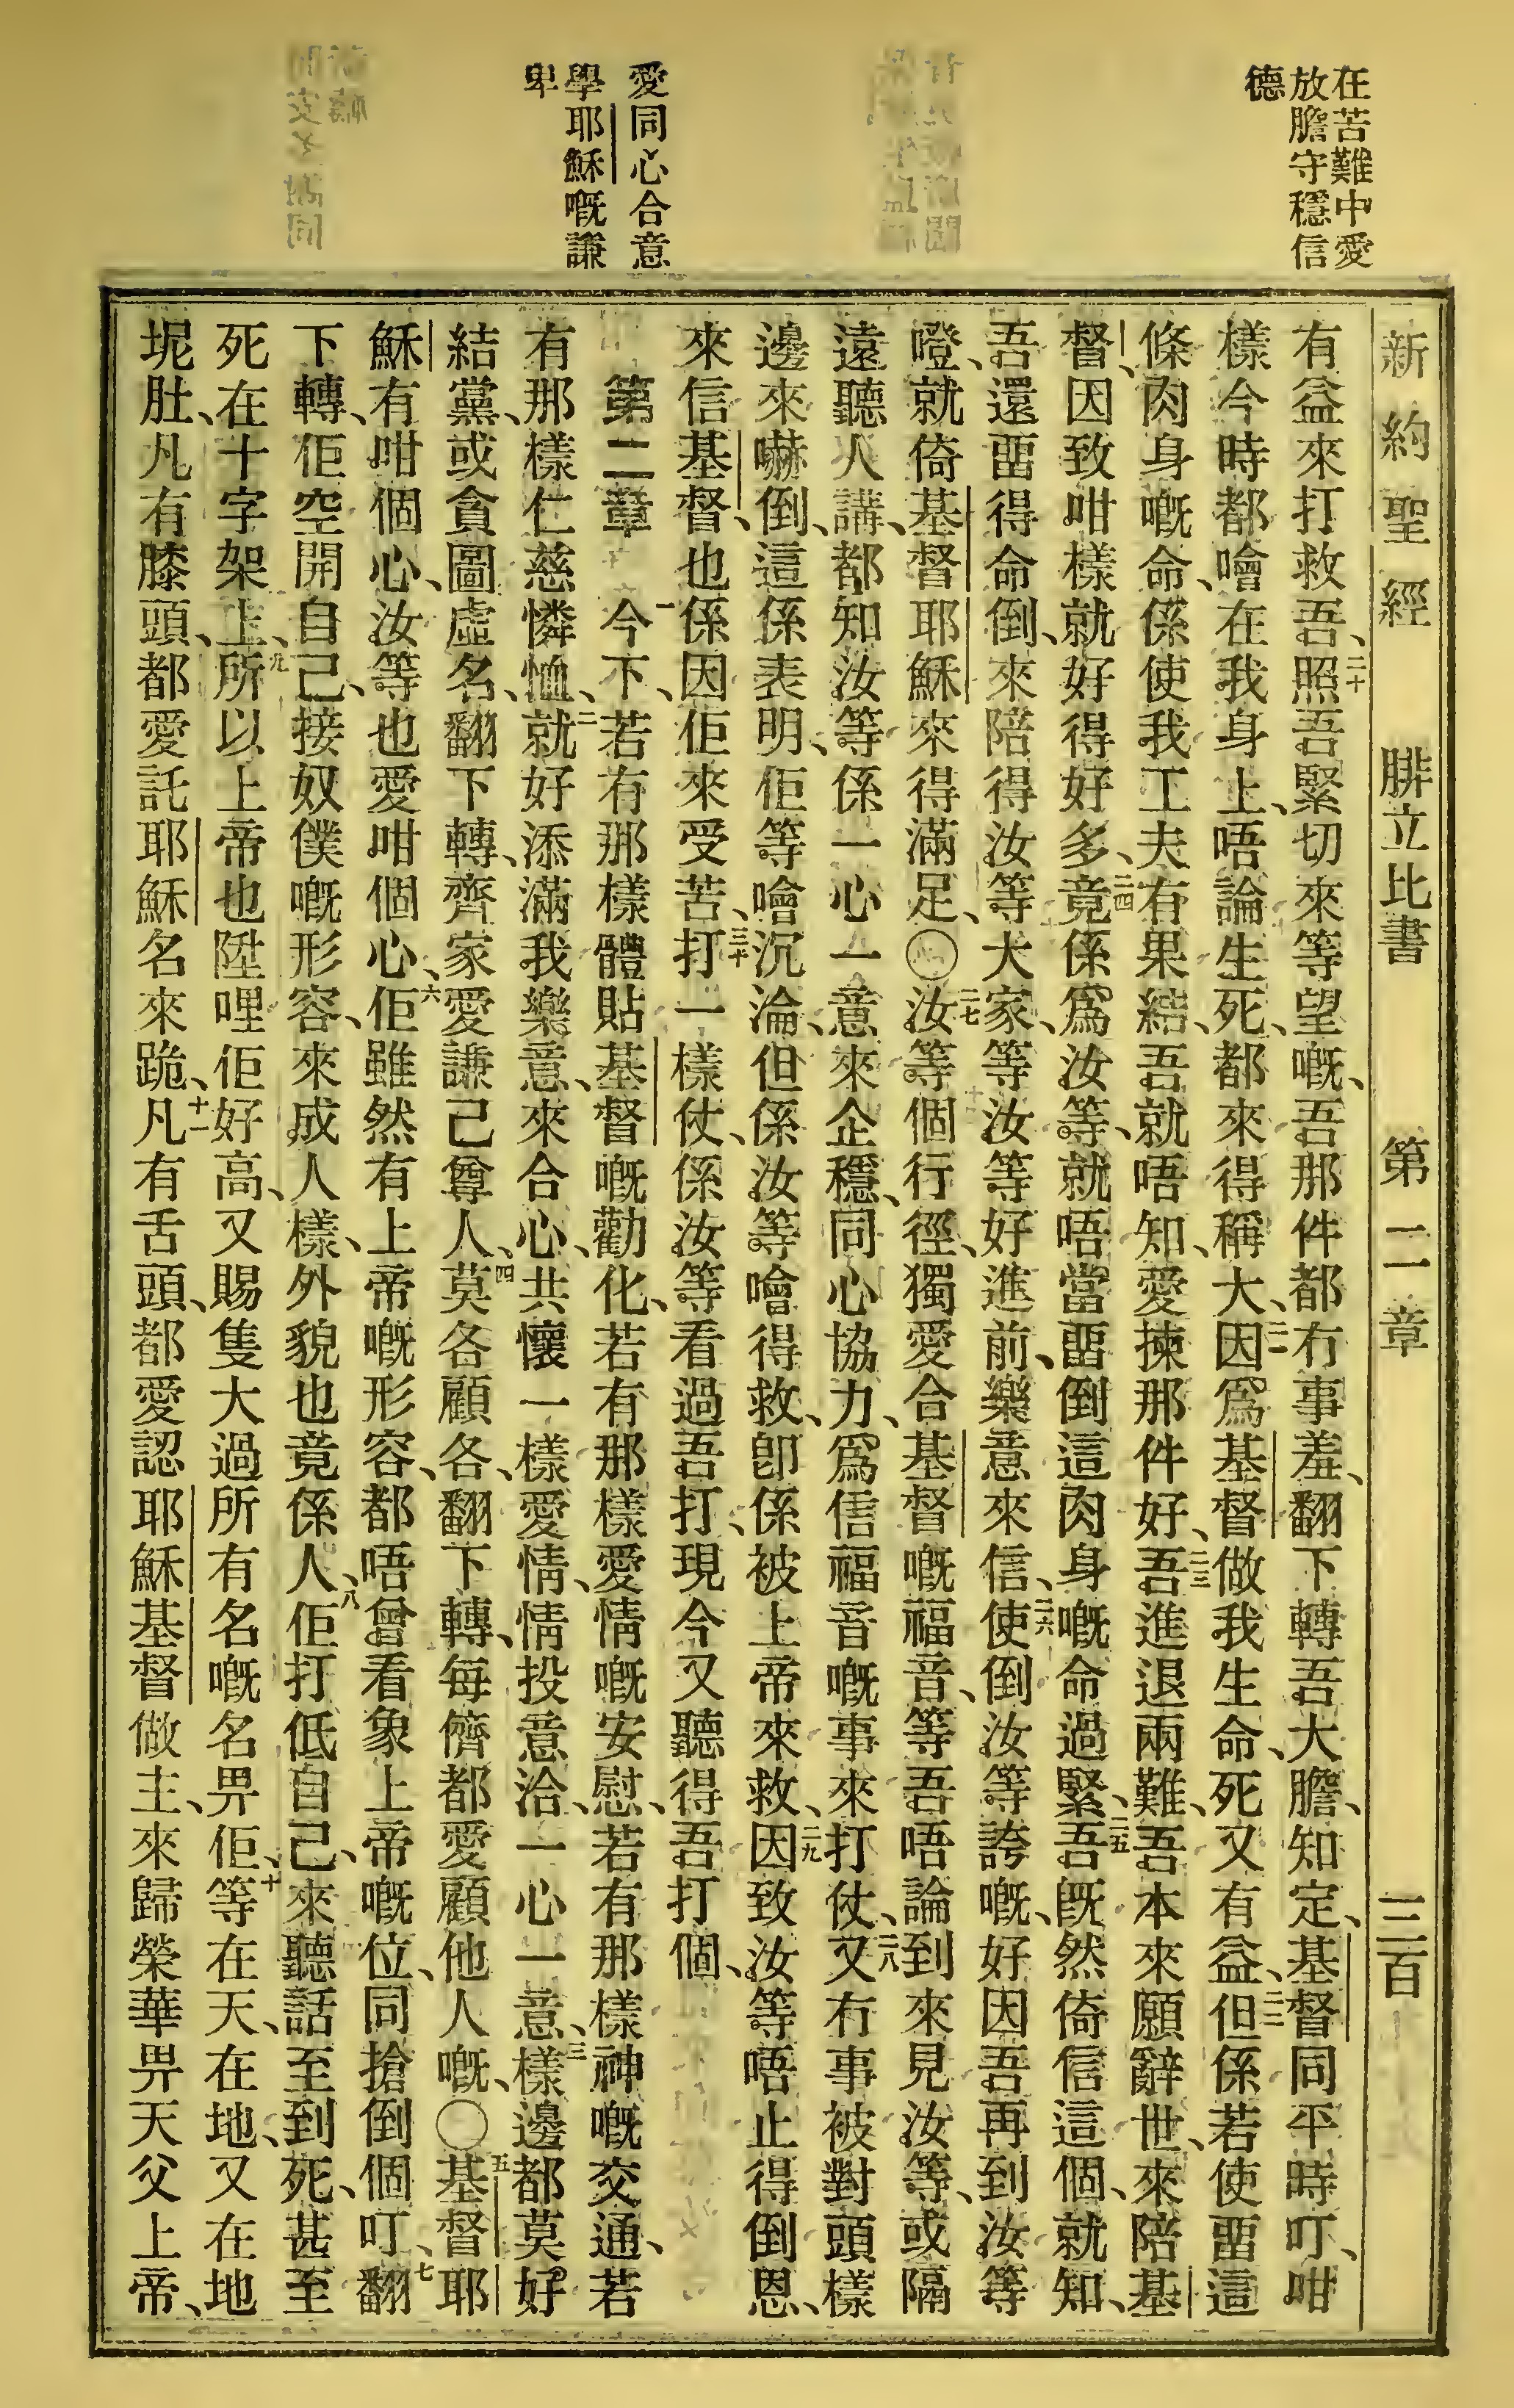 在苦難中愛
放膽守穩信
德
愛同心合意
學耶穌嘅謙
卑
新約聖經 腓立比書 第二章 三百
有益來打救吾、二十照吾緊切來等望嘅、吾那件都冇事羞、翻下轉吾大膽、知定、基督同平時叮、咁
樣今時都噲在我身上、唔論生死、都來得稱大、二一因爲基督做我生命、死又有益、二二但係若使畱這
條肉身嘅命、係使我工夫有果結、吾就唔知、愛揀那件好、二三吾進退兩難、吾本來願辭世、來陪基
督、因致咁樣就好得好多、二四竟係爲汝等、就唔當畱倒這肉身嘅命過緊、二五吾旣然倚信這個、就知、
吾還畱得命倒、來陪得汝等大家、等汝等好進前、樂意來信、二六使倒汝等誇嘅、好因吾再到汝等
嶝、就倚基督耶穌來得滿足、○二七汝等個行徑、獨愛合基督嘅福音、等吾唔論到來見汝等、或隔
遠聽人講、都知汝等係一心一意來企穩、同心協力、爲信福音嘅事來打仗、二八又冇事被對頭樣
邊來嚇倒、這係表明、佢等噲沉淪、但係汝等噲得救、卽係被上帝來救、二九因致汝等唔止得倒恩、
來信基督、也係因佢來受苦、三十打一樣仗、係汝等看過吾打、現今又聽得吾打個、
第二章 一今下、若有那樣體貼基督嘅勸化、若有那樣愛情嘅安慰、若有那樣神嘅交通、若
有那樣仁慈憐恤、二就好添滿我樂意、來合心、共懷一樣愛情、情投意洽、一心一意、三樣邊都莫好
結黨、或貪圖虛名、翻下轉、齊家愛謙己尊人、四莫各顧各、翻下轉、每儕都愛顧他人嘅、○五基督耶
穌有咁個心、汝等也愛咁個心、六佢雖然有上帝嘅形容、都唔曾看象上帝嘅位、同搶倒個叮、七翻
下轉、佢空開自己、接奴僕嘅形容、來成人樣、外貌也竟係人、八佢打低自己、來聽話至到死、甚至
死在十字架上、九所以上帝也陞哩佢好高、又賜隻大過所有名嘅名畀佢、十等在天、在地、又在地
坭肚、凡有膝頭、都愛託耶穌名來跪、十一凡有舌頭、都愛認耶穌基督做主、來歸榮華畀天父上帝、